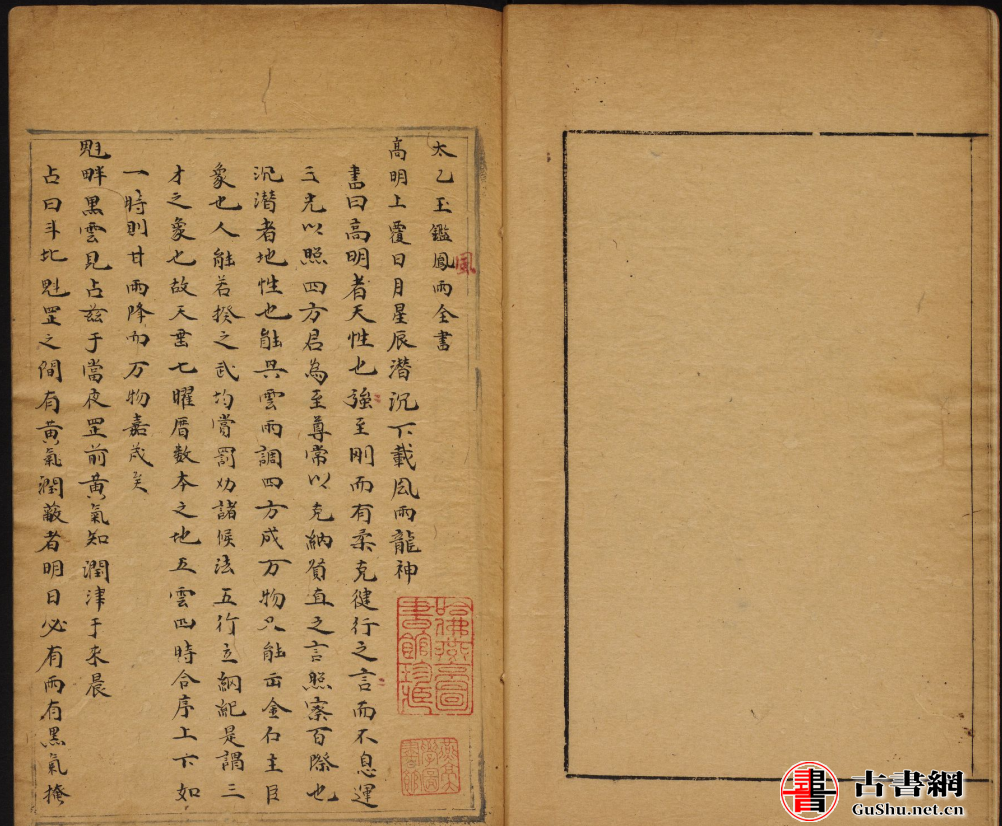 太乙玉鑑鳳雨全書
風
高明上覆日月星辰潜沉下載風雨龍神
書曰高明者天性也強至剛而有柔克健行之言而不息運
三光以照四方君為至尊常以克納貧直之言照察百際也
沉潜者地性也能興雲雨調四方成万物又能出金石主臣
象也人能若揆之武均賞罰劝諸候法五行立綱紀是謂三
才之象也故天垂七曜曆数本之地五雲四時合序上下如
一時則甘雨降而万物嘉成矣
魁畔黒雲見占兹于當夜罡前黄氣知潤津于来晨
占曰斗北魁罡之間有黄氣潤蔽者明日必有雨有黒氣掩
哈佛燕京圖
書館珍藏
古書網
GuShu.net.cn
書